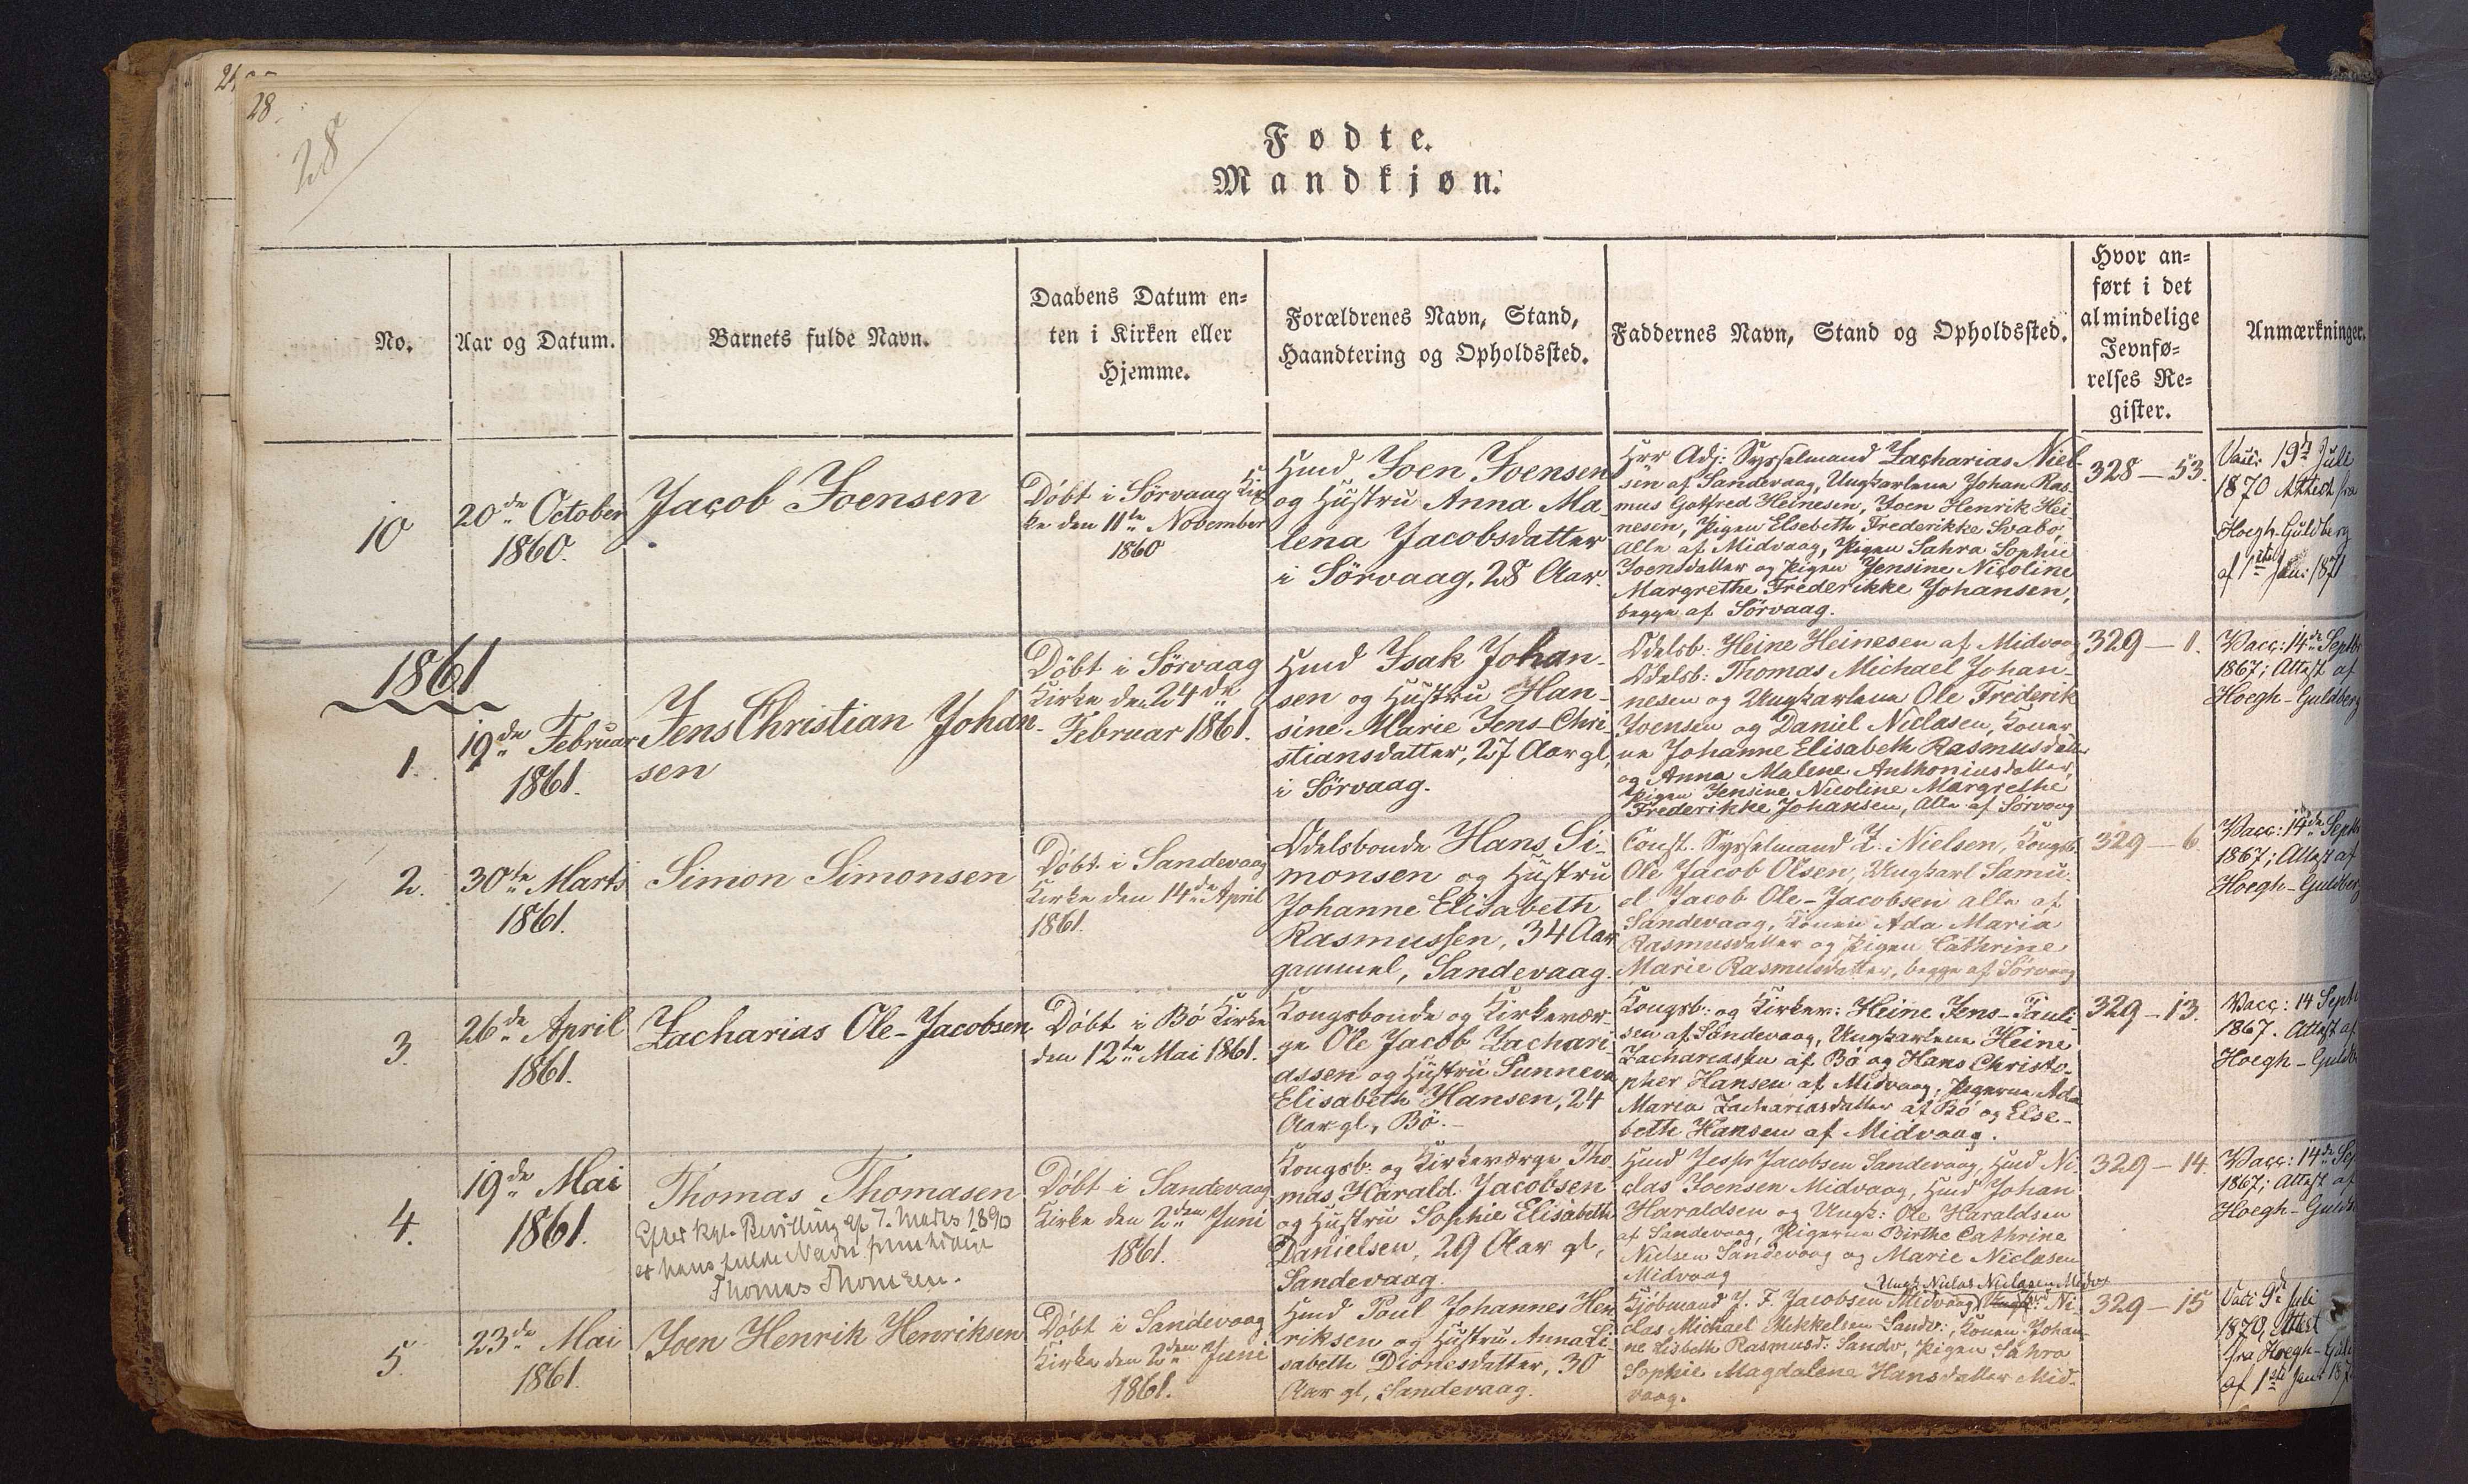 28.
28
Fødte.
Mandkjøn.
No.
Aar og Datum.
Barnets fulde Navn.
Daabens Datum en-
ten i Kirken eller
Hjemme.
Forældrenes Navn, Stand,
Haandtering og Opholdssted.
Faddernes Navn, Stand og Opholdssted.
Hvor an-
ført i det
almindelige
Jevnfø-
relses Re-
gister.
Anmærkninger.
10
20de October
1860.
Jacob Joensen
Döbt i Sörvaag Kir-
ke den 11te November
1860
Hmd Joen Joensen
og Hustru Anna Ma-
lena Jacobsdatter
i Sörvaag, 28 Aar.
Hrr Adj: Sysselmand Zacharias Niel-
sen af Sandevaag, Ungkarlene Johan Ras-
mus Gotfred Heinesen, Joen Henrik Hei-
nesen, Pigen Elsebeth Frederikke Svabo,
alle af Midvaag, Pigen Sahra Sophie
Joensdatter og Pigen Jensine Nicoline
Margrethe Frederikke Johansen,
begge af Sörvaag.
328 — 53.
Vacc: 19de Juli
1870 Attest fra
Hoegh-Guldberg
af 1ste Jan: 1871
1861
1.
19de Februar
1861.
Jens Christian Johan-
sen
Döbt i Sörvaag
Kirke den 24de
Februar 1861.
Hmd Isak Johan-
sen og Hustru Han-
sine Marie Jens-Chri-
stiansdatter, 27 Aar gl,
i Sörvaag.
Odelsb: Heine Heinesen af Midvaag
Odelsb: Thomas Michael Johan-
nesen og Ungkarlene Ole Frederik
Joensen og Daniel Niclasen, Koner-
ne Johanne Elisabeth Rasmusdatter
og Anna Malene Anthoniusdatter,
Pigen Jensine Nicoline Margrethe
Frederikke Johansen, alle af Sörvaag
329 — 1.
Vacc: 14de Septbr
1867; Attest af
Hoegh-Guldberg
2.
30te Marts
1861.
Simon Simonsen
Döbt i Sandevaag
Kirke den 14de April
1861.
Odelsbonde Hans Si-
monsen og Hustru
Johanne Elisabeth
Rasmussen, 34 Aar
gammel, Sandevaag.
Const. Sysselmand Z: Nielsen, Kongsb.
Ole Jacob Olsen, Ungkarl Samu-
el Jacob Ole-Jacobsen alle af
Sandevaag, Konen Ada Maria
Rasmusdatter og Pigen Cathrine
Marie Rasmusdatter, begge af Sörvaag
329 — 6.
Vacc: 14de Septb
1867; Attest af
Hoegh-Guldberg
3.
26de April
1861.
Zacharias Ole-Jacobsen
Döbt i Bö Kirke
den 12te Mai 1861.
Kongsbonde og Kirkevær-
ge Ole Jacob Zachari-
assen og Hustru Sunneva
Elisabeth Hansen, 24
Aar gl, Bö.
Kongsb: og Kirkev: Heine Jens-Pauli-
sen af Sandevaag, Ungkarlene Heine
Zachariassen af Bö og Hans Christo-
pher Hansen af Midvaag, Pigerne Ada
Maria Zachariasdatter af Bö og Else-
beth Hansen af Midvaag.
329 — 13.
Vacc: 14 Septb
1867. Attest af
Hoegh-Guldb
4.
19de Mai
1861.
Thomas Thomasen
Efter kgl. Bevilling af 7. Marts 1890
er hans fulde Navn fremtidige
Thomas Thomsen.
Döbt i Sandevaag
Kirke den 2den Juni
1861.
Kongsb: og Kirkeværge Tho-
mas Harald Jacobsen
og Hustru Sophie Elisabeth
Danielsen, 29 Aar gl,
Sandevaag.
Hmd Jesper Jacobsen Sandevaag, Hmd Ni-
clas Joensen Midvaag, Hmd Johan
Haraldsen og Ungk: Ole Haraldsen
af Sandevaag, Pigerne Birthe Cathrine
Nielsen Sandevaag og Marie Niclasen
Midvaag
329 — 14.
Vacc: 14de Sep
1867; Attest af
Hoegh-Guldb
5.
23de Mai
1861.
Joen Henrik Henriksen
Döbt i Sandevaag
Kirke den 2den Juni
1861.
Hmd Poul Johannes Hen-
riksen og Hustru Anna Li-
sabeth Dionesdatter, 30
Aar gl, Sandevaag.
Ungk Niclas Niclasen Midv
Kjöbmand J. F. Jacobsen Midvaag, Ni-
clas Michael Mikkelsen Sandv:, Konen Johan-
ne Lisbeth Rasmusd: Sandv, Pigen Sahra
Sophie Magdalene Hansdatter Mid-
vaag.
329 — 15
Vacc 9de Juli
1870, Attest
fra Hoegh-Gul
af 1ste Jan: 187